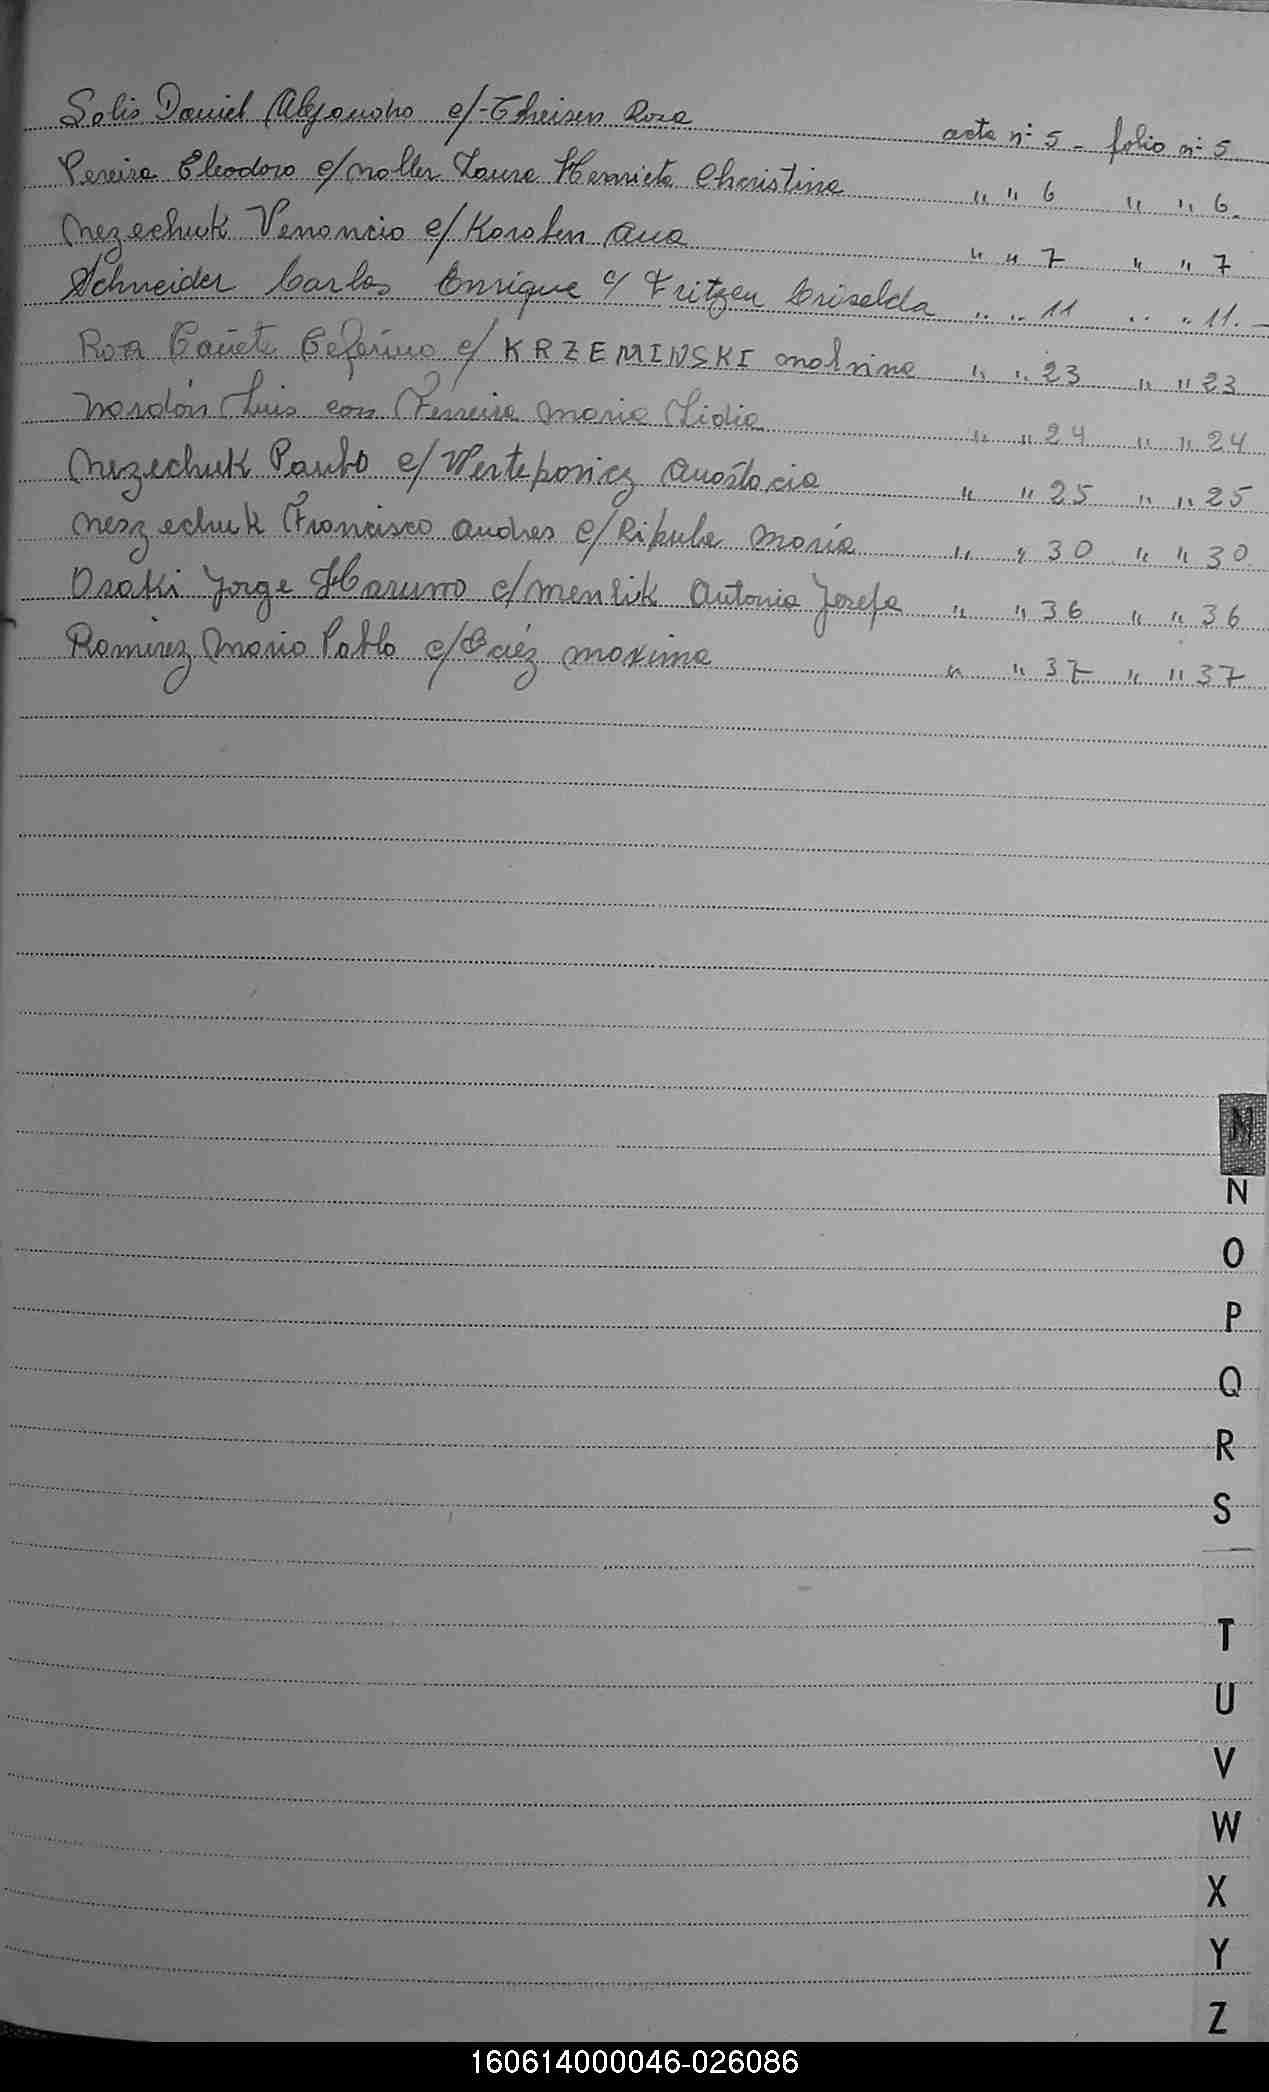 Solis Daniel Alejandro c/- Theisen Rosa acta nº 5 - folio nº 5
Pereira Eleodoro c/ Moller Laura Henrieta Christina " " 6 " " 6.
Mezechuk Venancio c/ Karaben Ana " " 7 " " 7
Schneider Carlos Enrique c/ Fritzen Griselda " " 11 " " 11.-
Roa Cañete Ceferino c/ KRZEMINSKI Malvina " " 23 " " 23
Nardón Luis con Ferreira Maria Lidia " " 24 " " 24
Mezechuk Paulo c/ Werteponicz Anastacia " " 25 " " 25
Meszechuk Francisco Andres c/ Rikula María " " 30 " " 30.
Osaki Jorge Harumo c/ Menlik Antonia Josefa " " 36 " " 36
Ramirez Mario Pablo c/ Baéz Maxima " " 37 " " 37
M
N
O
P
Q
R
S
T
U
V
W
X
Y
Z
160614000046-026086